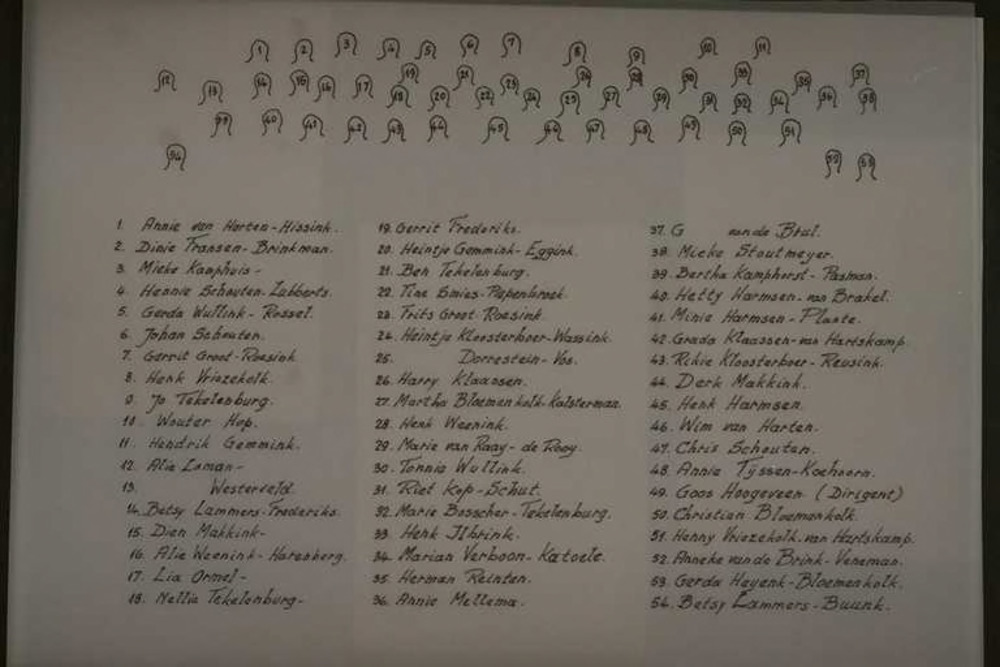 1 2 3 4 5 6 7 8 9 10 11
12 13 14 15 16 17 18 19 20 21 22 23 24 25 26 27 28 29 30 31 32 33 34 35 36 37 38
39 40 41 42 43 44 45 46 47 48 49 50 51
54 52 53
1. Annie van Harten-Hissink.
2. Dinie Fransen-Brinkman.
3. Mieke Kamphuis-
4. Hennie Schouten-Lubberts.
5. Gerda Wullink-Rossel.
6. Johan Schouten.
7. Gerrit Groot-Roesink
8. Henk Vriezekolk.
9. Jo Tekelenburg.
10. Wouter Hop.
11. Hendrik Gemmink.
12. Alie Loman-
13. Westerveld.
14. Betsy Lammers-Frederiks.
15. Dien Makkink-
16. Alie Weenink-Harenberg.
17. Lia Ormel-
18. Nellie Tekelenburg-
19. Gerrit Frederiks.
20. Heintje Gemmink-Eggink.
21. Ben Tekelenburg.
22. Tine Smies-Papenbroek.
23. Frits Groot Roesink.
24. Heintje Kloosterboer-Wassink.
25. Dorrestein-Vos.
26. Harry Klaassen.
27. Martha Bloemenkolk-Kolsterman.
28. Henk Weenink.
29. Marie van Raay-de Rooy.
30. Tonnie Wullink.
31. Riet Kop-Schut.
32. Marie Bosscher-Tekelenburg.
33. Henk Ilbrink.
34. Marian Verboon-Katoele.
35. Herman Reinten.
36. Annie Mellema.
37. G van de Brul.
38. Mieke Stoutmeyer.
39. Bertha Kamphorst-Pasman.
40. Hetty Harmsen-van Brakel.
41. Minie Harmsen-Plante.
42. Grada Klaassen-van Hartskamp.
43. Rikie Kloosterboer-Reusink.
44. Derk Makkink.
45. Henk Harmsen.
46. Wim van Harten.
47. Chris Schouten.
48. Annie Tijssen-Koehoorn.
49. Goos Hoogeveen (Dirigent)
50. Christian Bloemenkolk.
51. Henny Vriezekolk-van Hartskamp.
52. Anneke van de Brink-Veneman.
53. Gerda Heyenk-Bloemenkolk.
54. Betsy Lammers-Buunk.